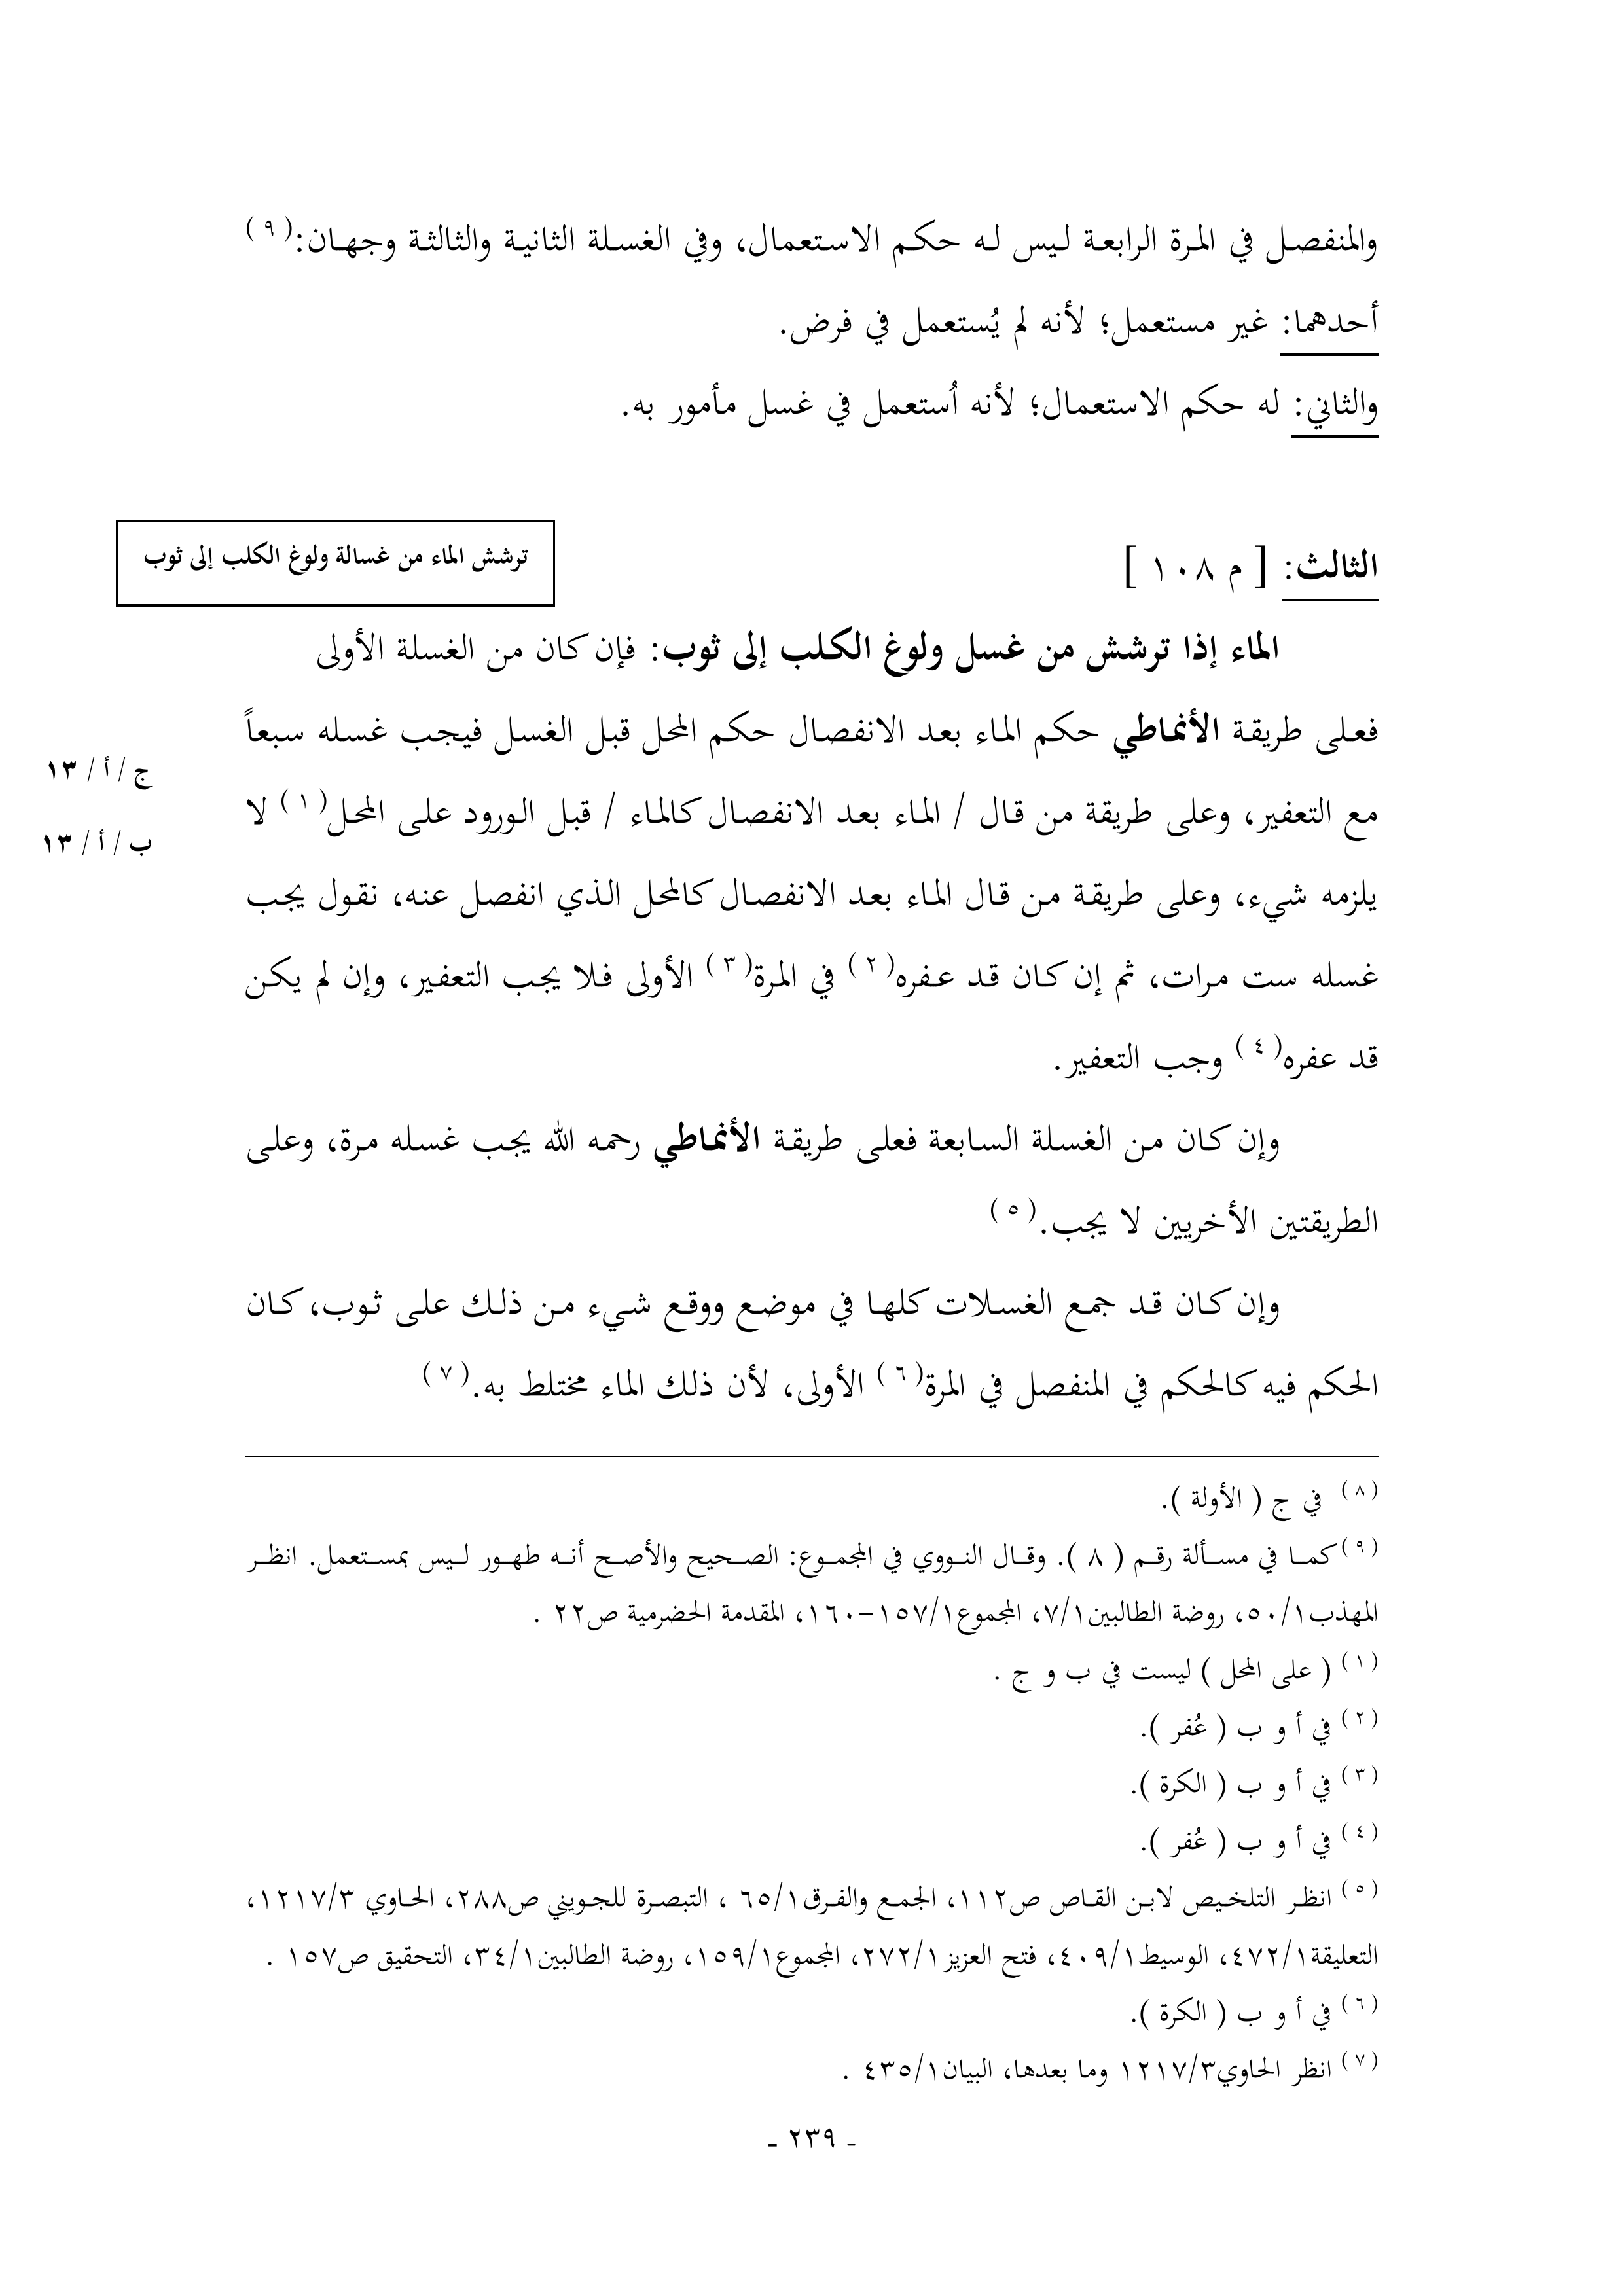 والمنفصل في المرة الرابعة ليس له حكم الاستعمال، وفي الغسلة الثانية والثالثة وجهان:(٩)
أحدهما: غير مستعمل؛ لأنه لم يُستعمل في فرض.
والثاني: له حكم الاستعمال؛ لأنه اُستعمل في غسل مأمور به.
الثالث: [ م ١٠٨ ]
ترشش الماء من غسالة ولوغ الكلب إلى ثوب
الماء إذا ترشش من غسل ولوغ الكلب إلى ثوب: فإن كان من الغسلة الأولى
فعلى طريقة الأنماطي حكم الماء بعد الانفصال حكم المحل قبل الغسل فيجب غسله سبعاً
مع التعفير، وعلى طريقة من قال / الماء بعد الانفصال كالماء / قبل الورود على المحل(١) لا
ج/أ/١٣
ب/أ/١٣
يلزمه شيء، وعلى طريقة من قال الماء بعد الانفصال كالمحل الذي انفصل عنه، نقول يجب
غسله ست مرات، ثم إن كان قد عفره(٢) في المرة(٣) الأولى فلا يجب التعفير، وإن لم يكن
قد عفره(٤) وجب التعفير.
وإن كان من الغسلة السابعة فعلى طريقة الأنماطي رحمه الله يجب غسله مرة، وعلى
الطريقتين الأخريين لا يجب.(٥)
وإن كان قد جمع الغسلات كلها في موضع ووقع شيء من ذلك على ثوب، كان
الحكم فيه كالحكم في المنفصل في المرة(٦) الأولى، لأن ذلك الماء مختلط به.(٧)
(٨) في ج ( الأولة ).
(٩) كما في مسألة رقم ( ٨ ). وقال النووي في المجموع: الصحيح والأصح أنه طهور ليس بمستعمل. انظر
المهذب٥٠/١، روضة الطالبين٧/١، المجموع١٥٧/١-١٦٠، المقدمة الحضرمية ص٢٢ .
(١) ( على المحل ) ليست في ب و ج .
(٢) في أ و ب ( عُفر ).
(٣) في أ و ب ( الكرة ).
(٤) في أ و ب ( عُفر ).
(٥) انظر التلخيص لابن القاص ص١١٢، الجمع والفرق٦٥/١ ، التبصرة للجويني ص٢٨٨، الحاوي ١٢١٧/٣،
التعليقة٤٧٢/١، الوسيط٤٠٩/١، فتح العزيز٢٧٢/١، المجموع١٥٩/١، روضة الطالبين٣٤/١، التحقيق ص١٥٧ .
(٦) في أ و ب ( الكرة ).
(٧) انظر الحاوي١٢١٧/٣ وما بعدها، البيان٤٣٥/١ .
- ٢٣٩ -